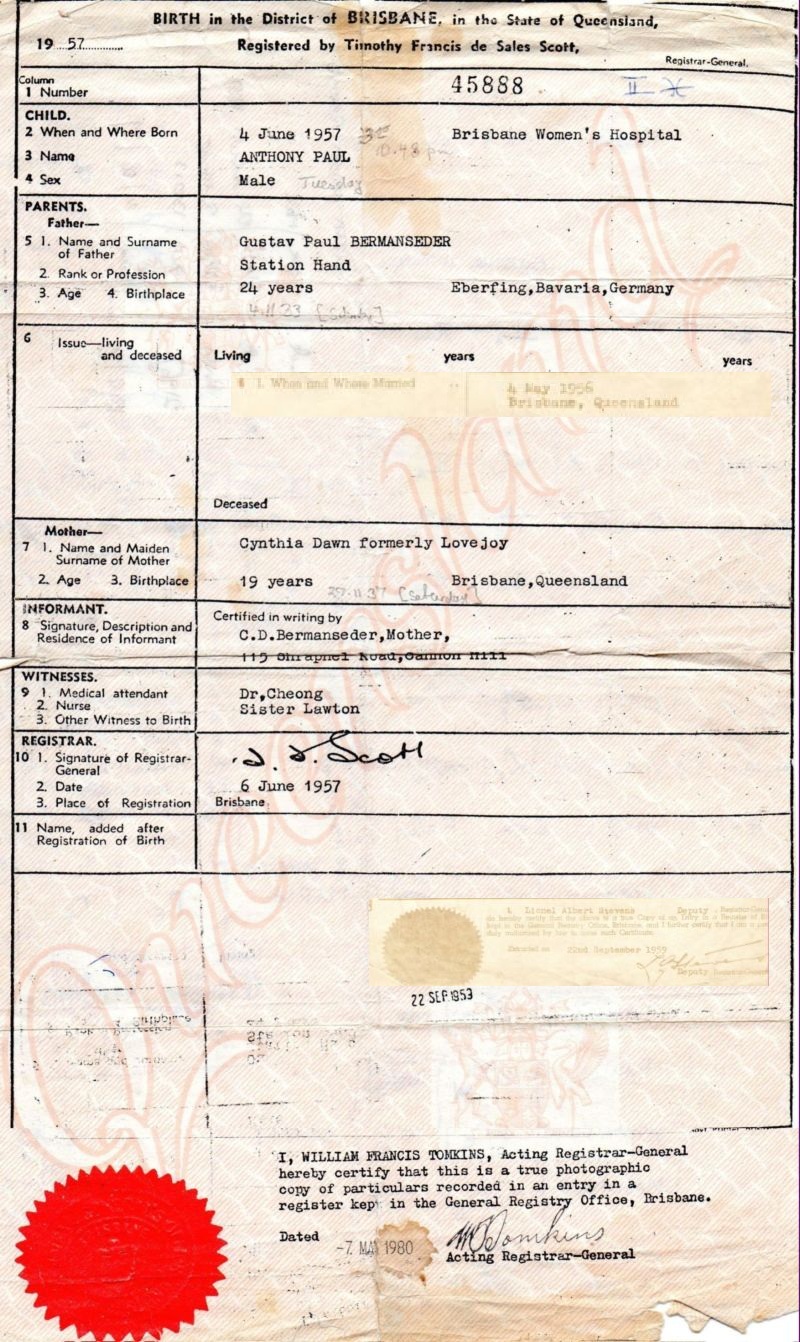 BIRTH in the District of BRISBANE, in the State of Queensland,
19 57 Registered by Timothy Francis de Sales Scott,
Registrar-General.
Column
1 Number 45888
CHILD.
2 When and Where Born 4 June 1957 Brisbane Women's Hospital
10.48 pm
3 Name ANTHONY PAUL
4 Sex Male Tuesday
PARENTS.
Father—
5 1. Name and Surname of Father Gustav Paul BERMANSEDER
2. Rank or Profession Station Hand
3. Age 4. Birthplace 24 years Eberfing,Bavaria,Germany
4.11.33 [Saturday]
6 Issue—living and deceased Living years years
1. When and Where Married 4 May 1956
Brisbane, Queensland
Deceased
Mother—
7 1. Name and Maiden Surname of Mother Cynthia Dawn formerly Lovejoy
2. Age 3. Birthplace 19 years Brisbane,Queensland
27.11.37 [Saturday]
INFORMANT.
8 Signature, Description and Residence of Informant Certified in writing by
C.D.Bermanseder,Mother,
115 Shrapnel Road,Cannon Hill
WITNESSES.
9 1. Medical attendant Dr,Cheong
2. Nurse Sister Lawton
3. Other Witness to Birth
REGISTRAR.
10 1. Signature of Registrar-General Scott
2. Date 6 June 1957
3. Place of Registration Brisbane
11 Name, added after Registration of Birth
I, Lionel Albert Stevens Deputy Registrar-General
22nd September 1959
Deputy Registrar-General
22 SEP 1959
Queensland
I, WILLIAM FRANCIS TOMKINS, Acting Registrar-General
hereby certify that this is a true photographic
copy of particulars recorded in an entry in a
register kept in the General Registry Office, Brisbane.
Dated -7 MAY 1980 Tomkins
Acting Registrar-General